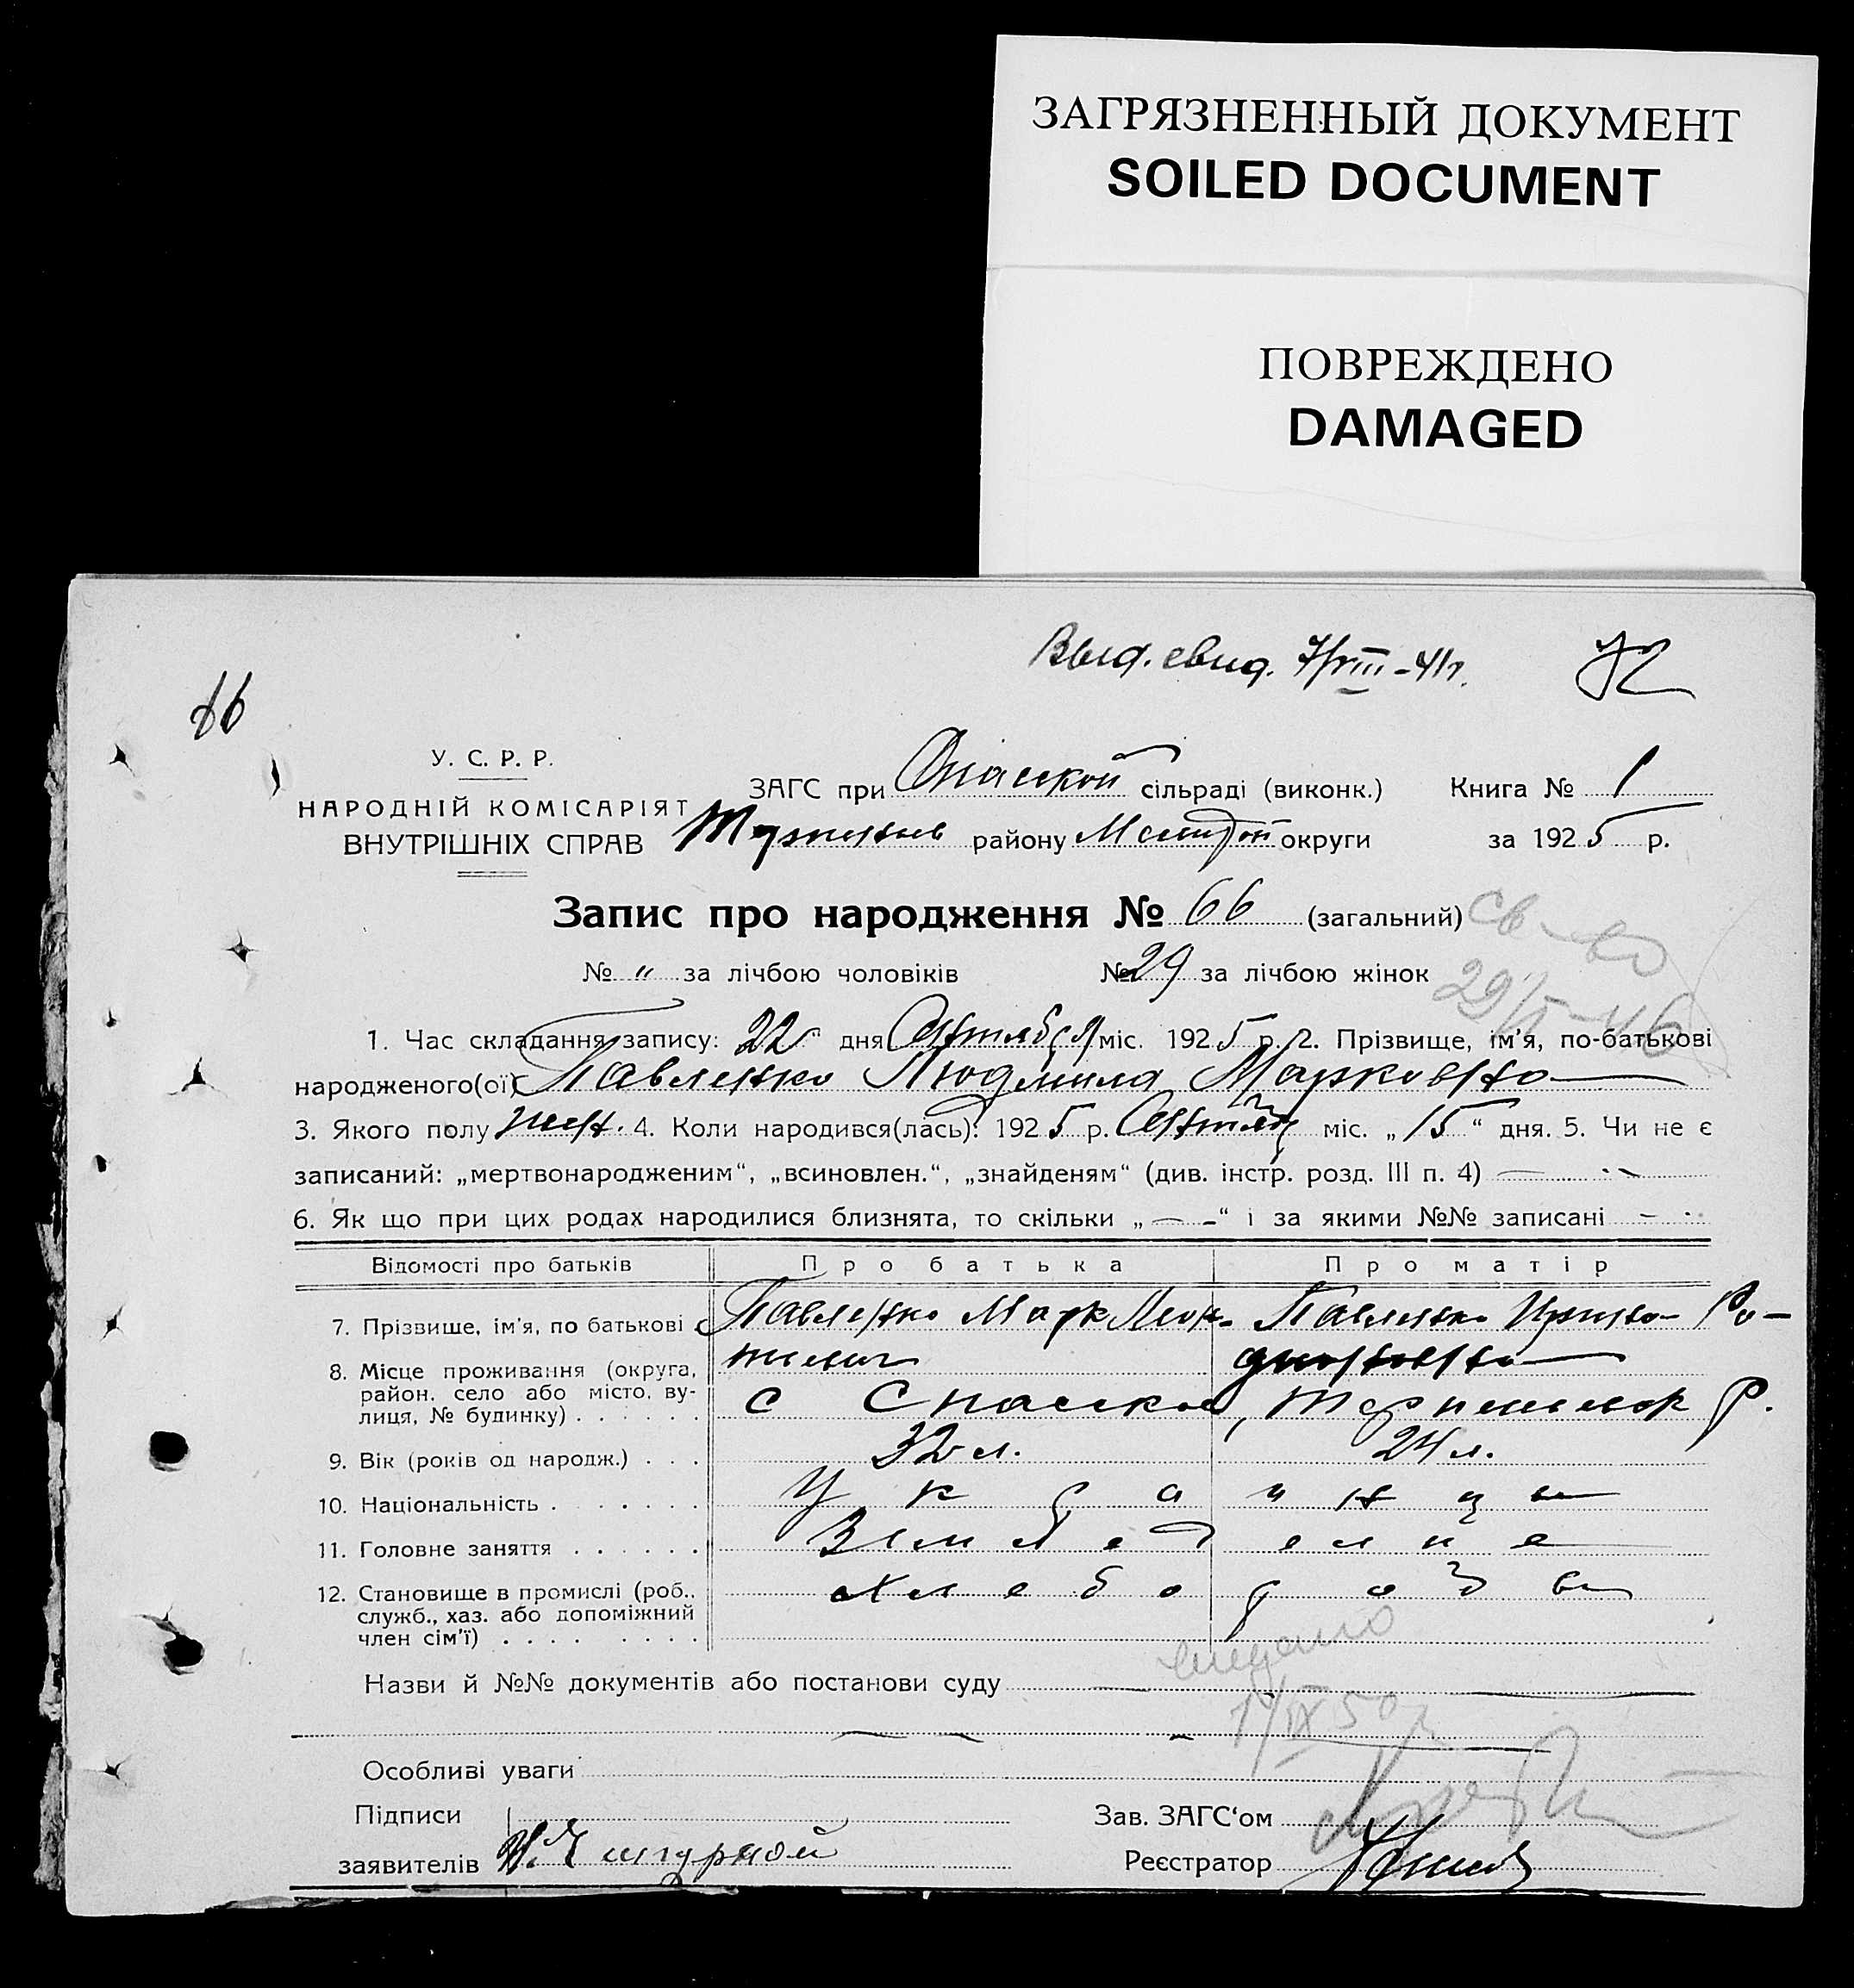 ЗАГРЯЗНЕННЫЙ ДОКУМЕНТ
SOILED DOCUMENT
ПОВРЕЖДЕНО
DAMAGED
Выд. свид. 7/VIII-41г. 72
66
У. С. Р. Р.
НАРОДНІЙ КОМІСАРІЯТ
ВНУТРІШНІХ СПРАВ
ЗАГС при Спасской сільраді (виконк.) Книга № 1
району округи за 1925 р.
Запис про народження № 66 (загальний) св-во
№ " за лічбою чоловіків № 29 за лічбою жінок
1. Час складання запису: 22 " дня Октября міс. 1925 р. 2. Прізвище, ім'я, по-батькові
народженого(ої) Павленко Людмила Марковна
3. Якого полу жен. 4. Коли народився(лась): 1925 р. Октяб міс. „15" дня. 5. Чи не є
записаний: „мертвонародженим", „всиновлен.", „знайденям" (див. інстр. розд. III п. 4) —
6. Як що при цих родах народилися близнята, то скільки „—" і за якими №№ записані —
Відомості про батьків Про батька Про матір
7. Прізвище, ім'я, по батькові Павленко Марк Леон- Павленко Ирина
8. Місце проживання (округа, район, село або місто, вулиця, № будинку) с Спаское, Р.
9. Вік (років од народж.) 32 л. 24 л.
10. Національність Украинцы
11. Головне заняття Земледелие
12. Становище в промислі (роб., служб., хаз. або допоміжний член сім'ї) Хлеборобы
видано
Назви й №№ документів або постанови суду
Особливі уваги
Підписи
заявителів
Зав. ЗАГС'ом
Реєстратор